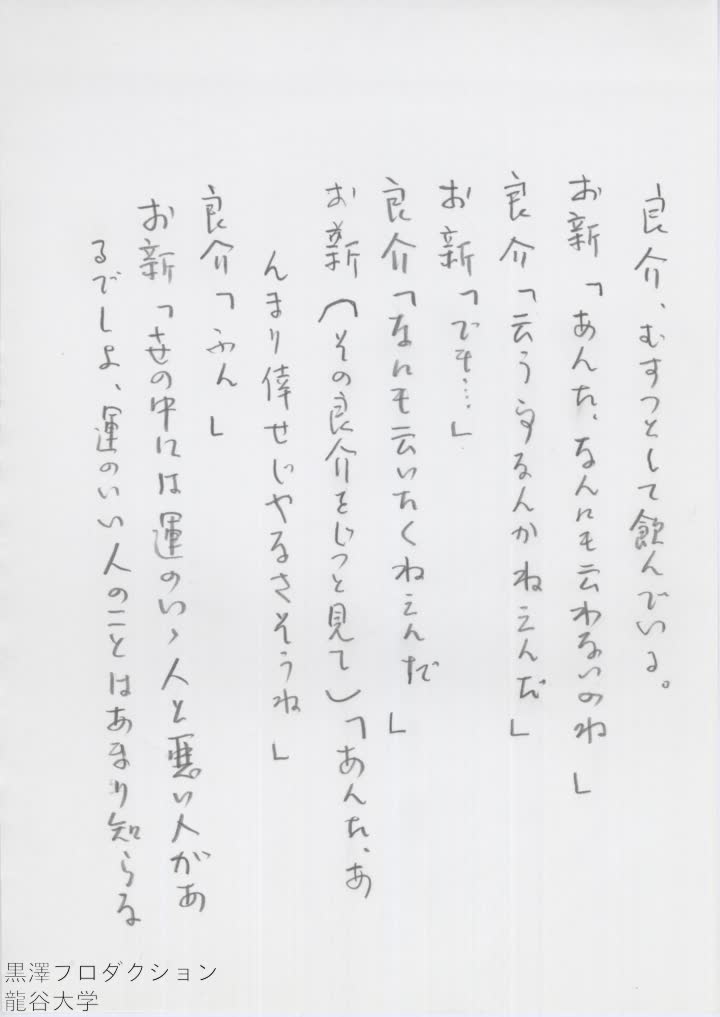 良介、むすつとして飲んでいる。
お新「あんた、なんにも云わないのね」
良介「云う事るんかねえんだ」
お新「でも…」
良介「なにも云いたくねえんだ」
お新（その良介をじつと見て）「あんた、あ
んまり倖せじやなさそうね」
良介「ふん」
お新「世の中には運のいゝ人と悪い人があ
るでしよ、運のいい人のことはあまり知らな
黒澤プロダクション
龍谷大学